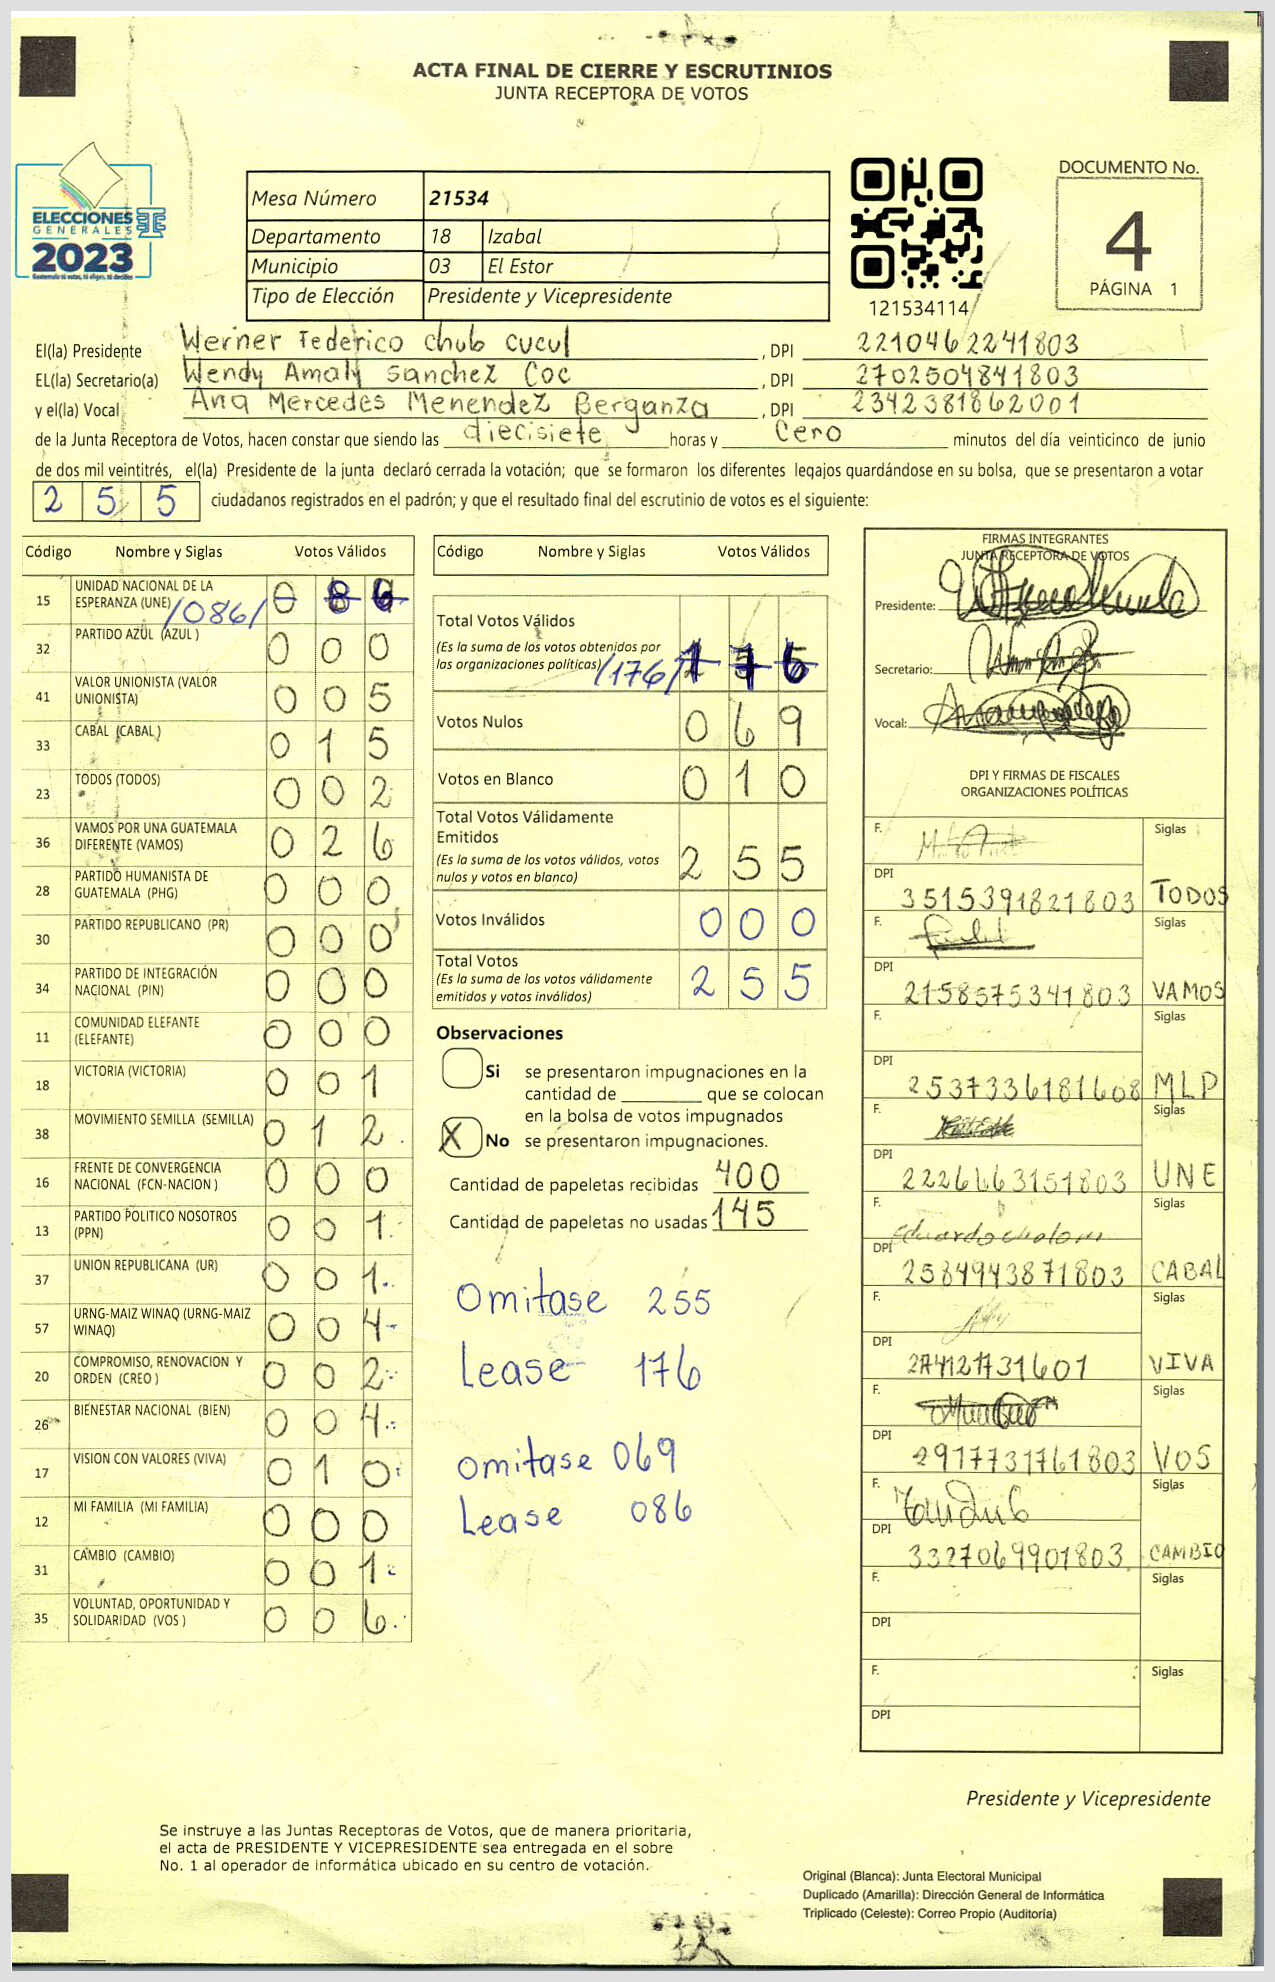 ACTA FINAL DE CIERRE Y ESCRUTINIOS
JUNTA RECEPTORA DE VOTOS
ELECCIONES
GENERALES
2023
Guatemala tú votas, tú eliges, tú decides
Mesa Número 21534
Departamento 18 Izabal
Municipio 03 El Estor
Tipo de Elección Presidente y Vicepresidente
121534114
DOCUMENTO No.
4
PÁGINA 1
El(la) Presidente Werner Federico Chub Cucul , DPI 2210462241803
EL(la) Secretario(a) Wendy Amaly Sanchez Coc , DPI 2702504841803
y el(la) Vocal Ana Mercedes Menendez Berganza , DPI 2342381862001
de la Junta Receptora de Votos, hacen constar que siendo las diecisiete horas y Cero minutos del día veinticinco de junio
de dos mil veintitrés, el(la) Presidente de la junta declaró cerrada la votación; que se formaron los diferentes legajos guardándose en su bolsa, que se presentaron a votar
2 5 5 ciudadanos registrados en el padrón; y que el resultado final del escrutinio de votos es el siguiente:
Código Nombre y Siglas Votos Válidos
15 UNIDAD NACIONAL DE LA ESPERANZA (UNE) /086/ 0 8 6
32 PARTIDO AZUL (AZUL ) 0 0 0
41 VALOR UNIONISTA (VALOR UNIONISTA) 0 0 5
33 CABAL (CABAL) 0 1 5
23 TODOS (TODOS) 0 0 2
36 VAMOS POR UNA GUATEMALA DIFERENTE (VAMOS) 0 2 6
28 PARTIDO HUMANISTA DE GUATEMALA (PHG) 0 0 0
30 PARTIDO REPUBLICANO (PR) 0 0 0
34 PARTIDO DE INTEGRACIÓN NACIONAL (PIN) 0 0 0
11 COMUNIDAD ELEFANTE (ELEFANTE) 0 0 0
18 VICTORIA (VICTORIA) 0 0 1
38 MOVIMIENTO SEMILLA (SEMILLA) 0 1 2
16 FRENTE DE CONVERGENCIA NACIONAL (FCN-NACION ) 0 0 0
13 PARTIDO POLITICO NOSOTROS (PPN) 0 0 1
37 UNION REPUBLICANA (UR) 0 0 1
57 URNG-MAIZ WINAQ (URNG-MAIZ WINAQ) 0 0 4
20 COMPROMISO, RENOVACION Y ORDEN (CREO ) 0 0 2
26 BIENESTAR NACIONAL (BIEN) 0 0 4
17 VISION CON VALORES (VIVA) 0 1 0
12 MI FAMILIA (MI FAMILIA) 0 0 0
31 CAMBIO (CAMBIO) 0 0 1
35 VOLUNTAD, OPORTUNIDAD Y SOLIDARIDAD (VOS ) 0 0 6
Código Nombre y Siglas Votos Válidos
Total Votos Válidos
(Es la suma de los votos obtenidos por
las organizaciones políticas) /176/ 1 7 6
Votos Nulos 0 6 9
Votos en Blanco 0 1 0
Total Votos Válidamente
Emitidos
(Es la suma de los votos válidos, votos
nulos y votos en blanco) 2 5 5
Votos Inválidos 0 0 0
Total Votos
(Es la suma de los votos válidamente
emitidos y votos inválidos) 2 5 5
Observaciones
Si se presentaron impugnaciones en la
cantidad de ________ que se colocan
en la bolsa de votos impugnados
X No se presentaron impugnaciones.
Cantidad de papeletas recibidas 400
Cantidad de papeletas no usadas 145
Omitase 255
Lease 176
omitase 069
Lease 086
FIRMAS INTEGRANTES
JUNTA RECEPTORA DE VOTOS
Presidente:
Secretario:
Vocal:
DPI Y FIRMAS DE FISCALES
ORGANIZACIONES POLÍTICAS
F. Siglas
DPI 3515391821803 TODOS
F. Siglas
DPI 2158575341803 VAMOS
F. Siglas
DPI 2537336181608 MLP
F. Siglas
DPI 2226663151803 UNE
F. Siglas
DPI 2584943871803 CABAL
F. Siglas
DPI 274121731601 VIVA
F. Siglas
DPI 2917731761803 VOS
F. Siglas
DPI 3327069901803 CAMBIO
F. Siglas
DPI
F. Siglas
DPI
Presidente y Vicepresidente
Se instruye a las Juntas Receptoras de Votos, que de manera prioritaria,
el acta de PRESIDENTE Y VICEPRESIDENTE sea entregada en el sobre
No. 1 al operador de informática ubicado en su centro de votación.
Original (Blanca): Junta Electoral Municipal
Duplicado (Amarilla): Dirección General de Informática
Triplicado (Celeste): Correo Propio (Auditoría)